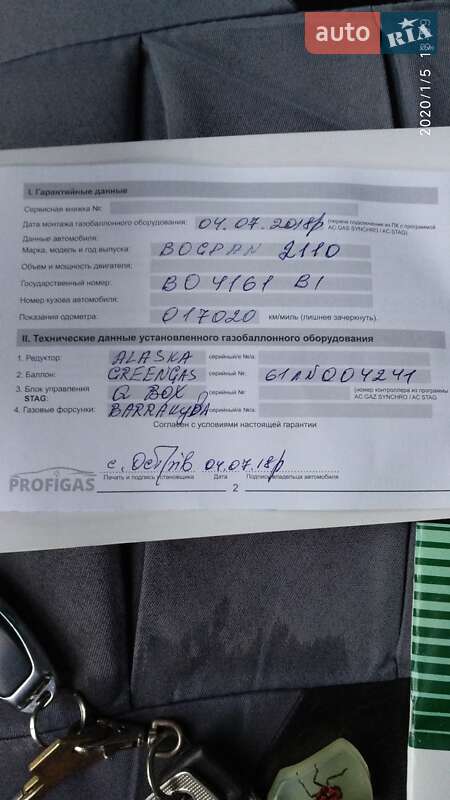 auto RIA .com
2020/1/5
I. Гарантийные данные
Сервисная книжка №:
Дата монтажа газобаллонного оборудования: 04.07.2018р (первое подключение из ПК с программой AC GAS SYNCHRO / AC STAG)
Данные автомобиля:
Марка, модель и год выпуска: BOGDAN 2110
Объем и мощность двигателя:
Государственный номер: BO 4161 BI
Номер кузова автомобиля:
Показания одометра: 017020 км/миль (лишнее зачеркнуть).
II. Технические данные установленного газобаллонного оборудования
1. Редуктор: ALASKA серийный/е №/а:
2. Баллон: GREENGAS серийный №: 004241
3. Блок управления STAG: Q BOX серийный №: (номер контроллера из программы AC GAZ SYNCHRO / AC STAG
4. Газовые форсунки: BARRAKUDA серийный/е №/а:
Согласен с условиями настоящей гарантии
PROFIGAS
с. Острів 04.07.18р
Печать и подпись установщика Дата Подпись владельца автомобиля
2